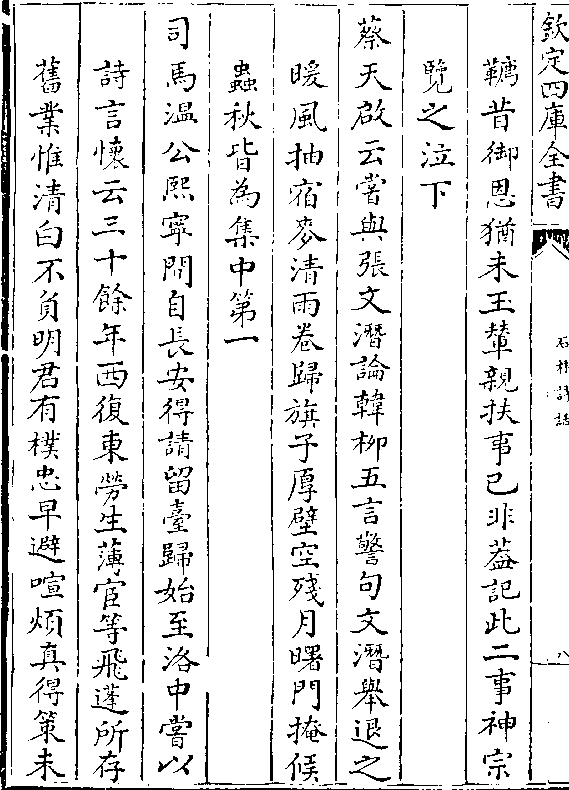 欽定四庫全書
石林詩話
八
韉昔御恩猶未玉輦親扶事已非葢記此二事神宗
覽之泣下
蔡天啟云嘗與張文潛論韓柳五言警句文潛舉退之
暖風抽宿麥清雨卷歸旗子厚壁空殘月曙門掩候
蟲秋皆為集中第一
司馬溫公熙寧間自長安得請留臺歸始至洛中嘗以
詩言懷云三十餘年西復東勞生薄宦等飛蓬所存
舊業惟清白不負明君有樸忠早避喧煩真得策未